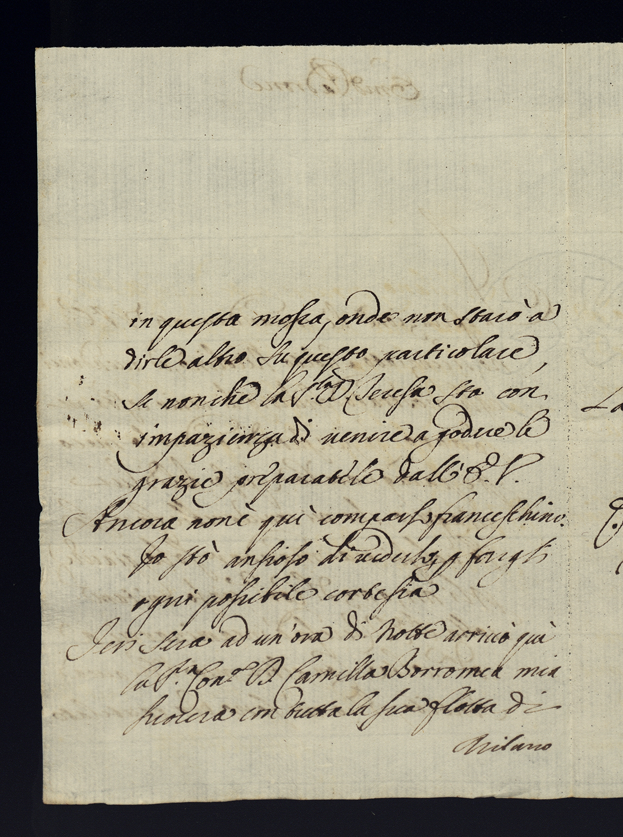 in questa mossa, onde non starò a
dirle altro su questo particolare,
se nonche la Sig.ra D. Teresa sta con
impazienza di venire a godere le
grazie preparatele dall' E. V.
Ancora non è quì comparso franceschino.
Io stò ansioso di vederlo, p fargli
ogni possibile cortesia
Jeri sera ad un'ora di notte arrivò quì
la S.ra Con.a D. Camilla Borromea mia
suocera con tutta la sua flotta di
Milano
La